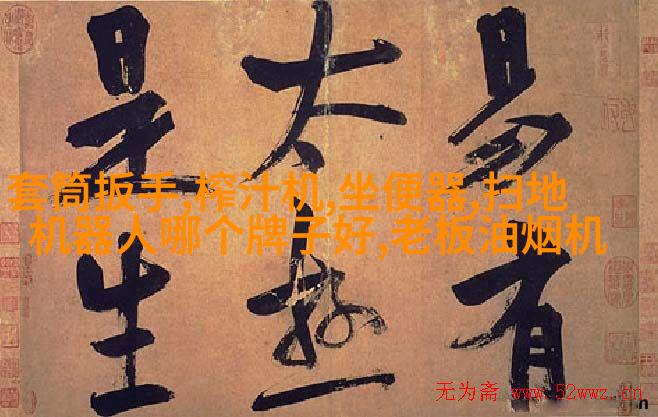 易有
太極
是生
套筒扳手,榨汁机,坐便器,扫地
机器人哪个牌子好,老板油烟机
无为斋 www.52wwz.cn
n